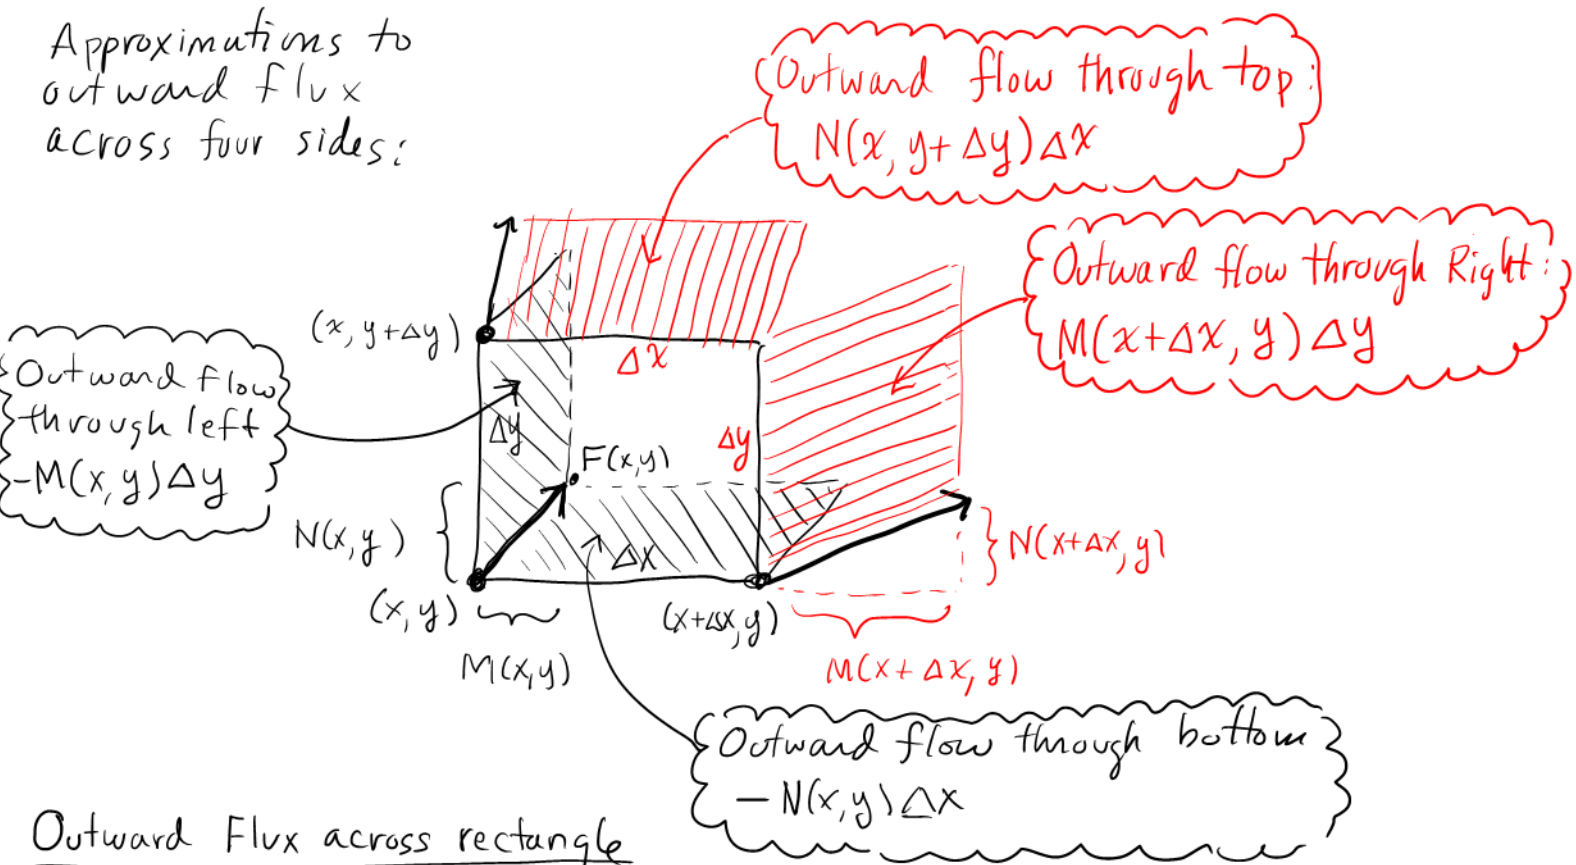 Approximations to
outward flux
across four sides:
Outward flow through top:
N(x, y+Δy)Δx
Outward flow through Right:
M(x+Δx, y)Δy
(x, y+Δy)
Δx
Outward flow
through left
-M(x,y)Δy
Δy
Δy
F(x,y)
N(x,y)
Δx
N(x+Δx,y)
(x,y)
(x+Δx,y)
M(x,y)
M(x+Δx, y)
Outward flow through bottom
- N(x,y)Δx
Outward Flux across rectangle